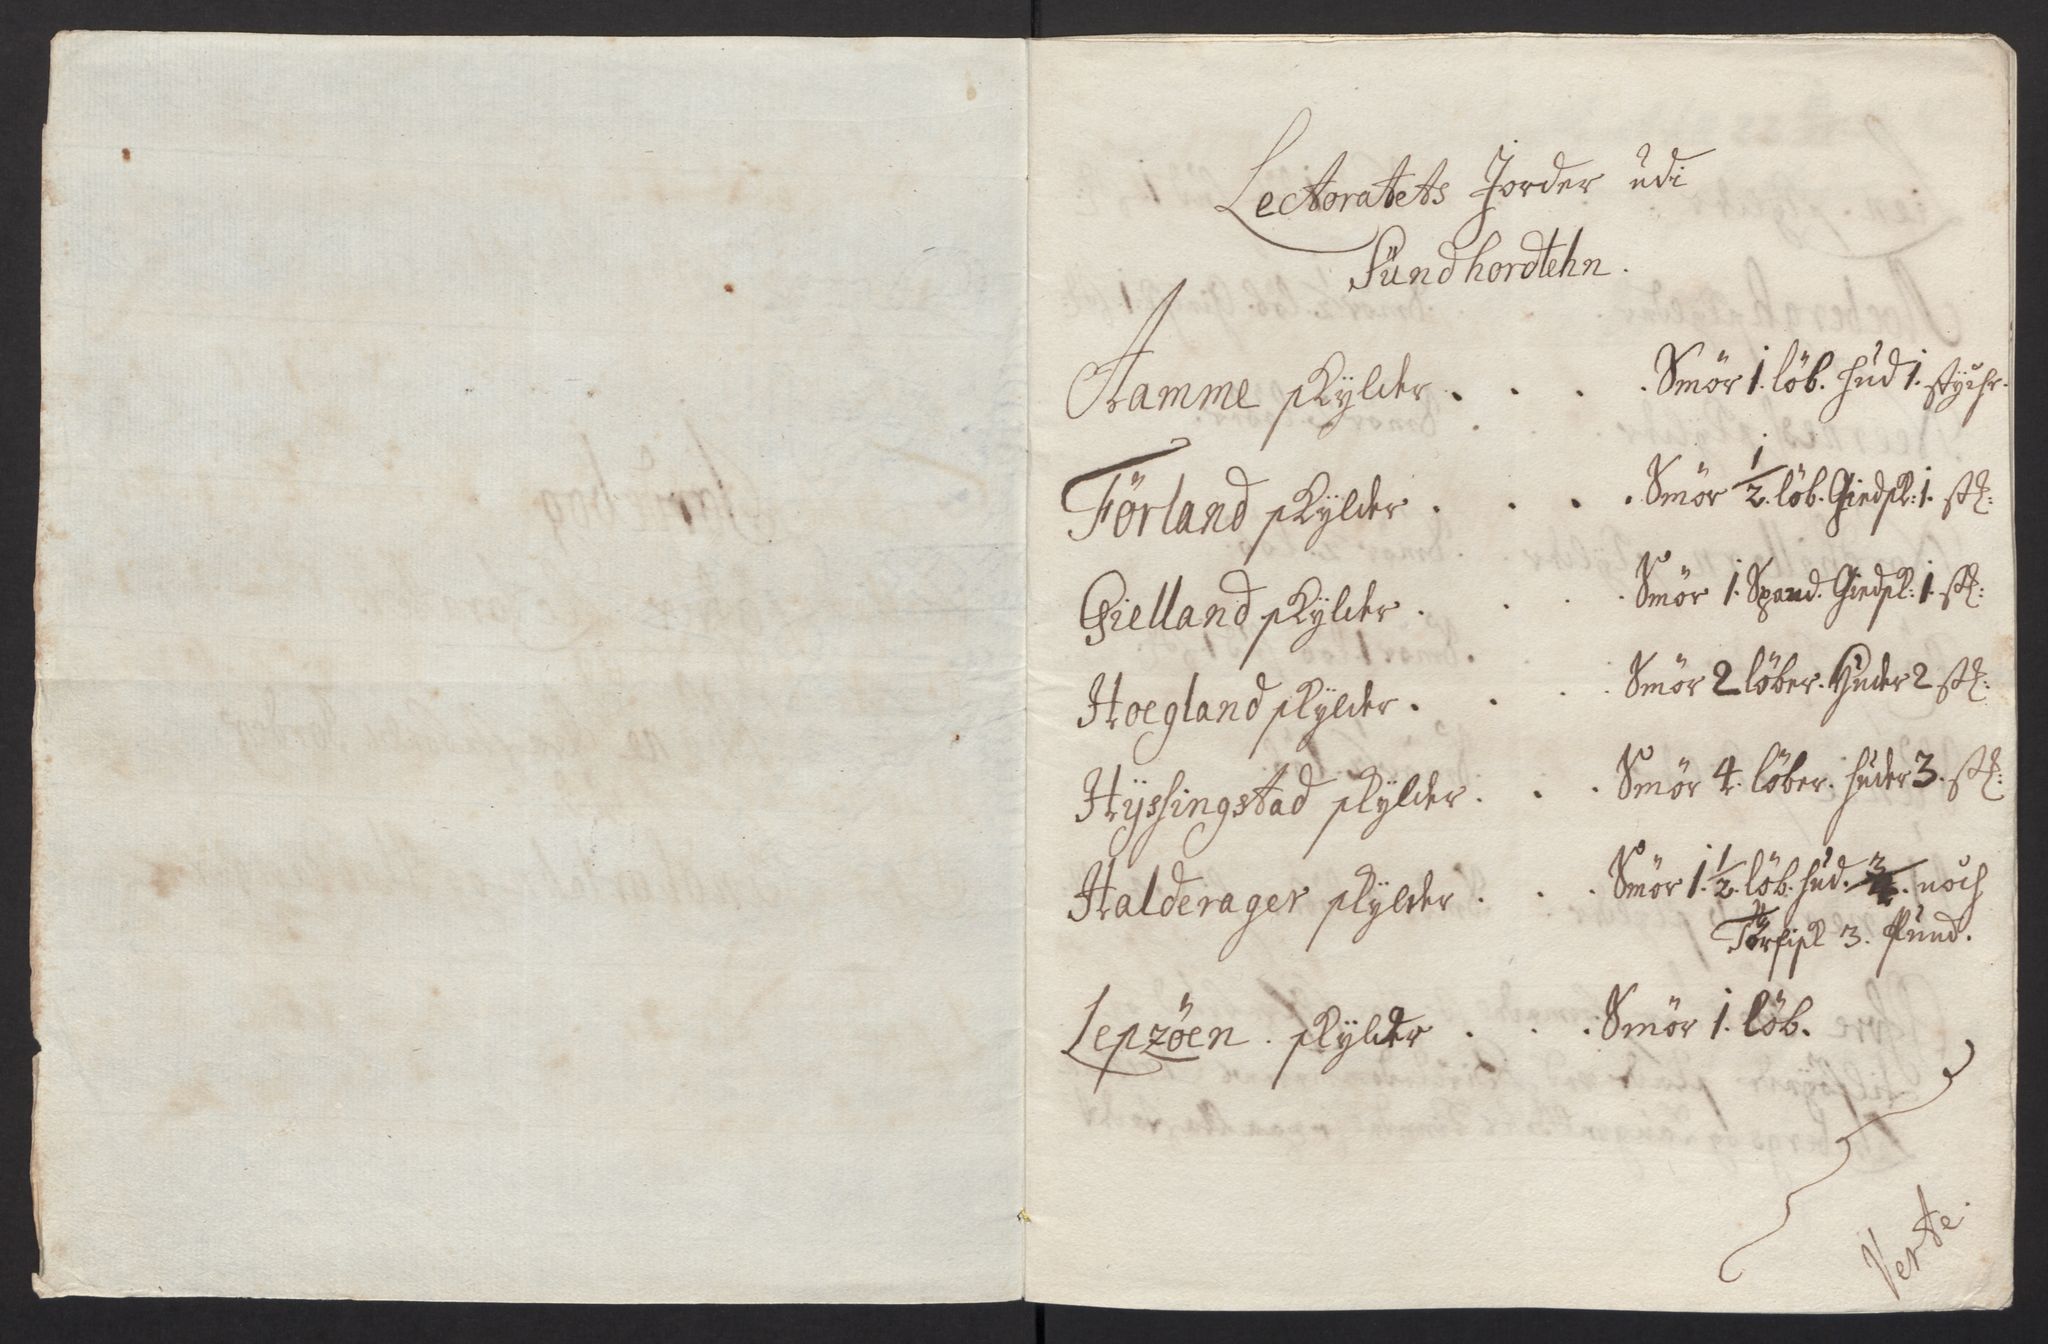 Lectoratets Jorder udi
Sündhordlehn.
Hamme skÿlder . . . . Smör 1. löb. hud 1. stychr.
Förland skÿlder . . . . Smör 1/2. löb. Giedsk: 1. stk:
Gielland skÿlder . . . . Smör 1. Spand. Giedsk: 1. stk:
Hoegland skÿlder . . . . Smör 2 löber. Huder 2 stk:
Hÿssingstad skÿlder . . . Smör 4. löber. huder 3. stk:
Halderager skÿlder . . . Smör 1. 1/2. löb. hud. 3/4. noch
Törfisk 3. Pund.
Lepzöen . skÿlder . . . Smör 1. löb.
Verte.